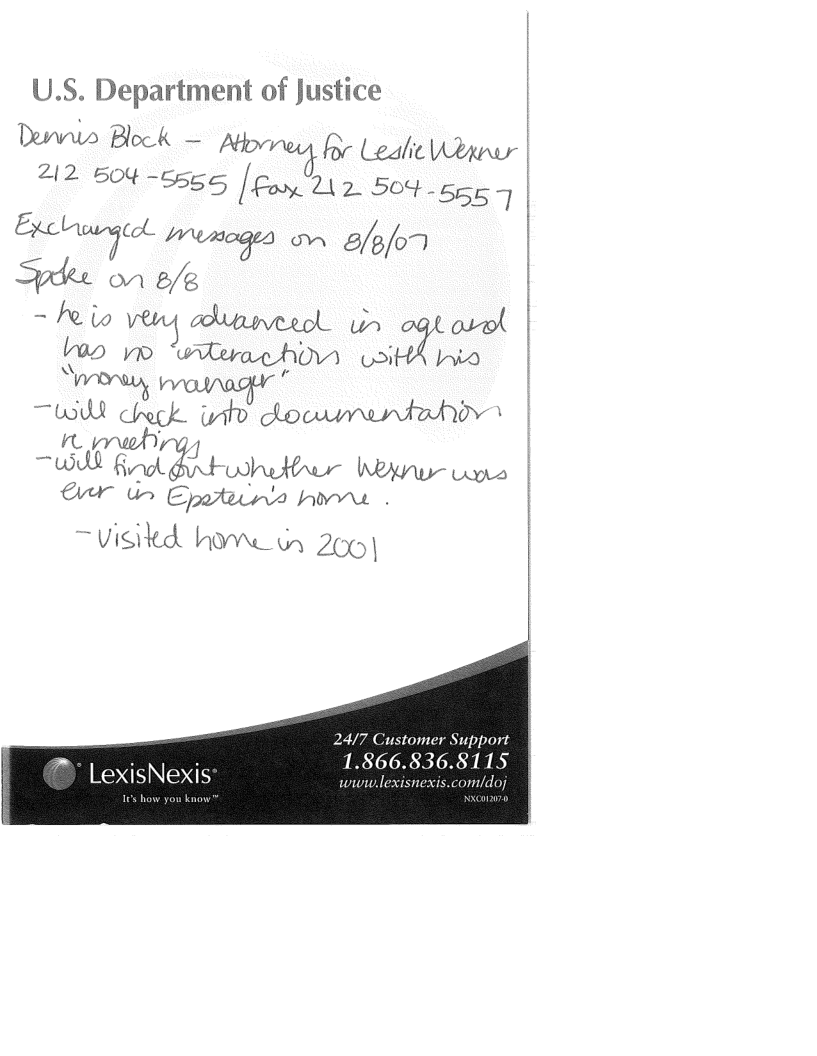 U.S. Department of Justice
Dennis Block – Attorney for Leslie Wexner
212 504-5555 / fax 212 504-5557
Exchanged messages on 8/8/07
Spoke on 8/8
- he is very advanced in age and
has no interaction with his
"money manager"
- will check into documentation
re meetings
- will find out whether Wexner was
ever in Epstein's home.
- visited home in 2001
24/7 Customer Support
1.866.836.8115
www.lexisnexis.com/doj
NXC01207-0
LexisNexis®
It's how you know™